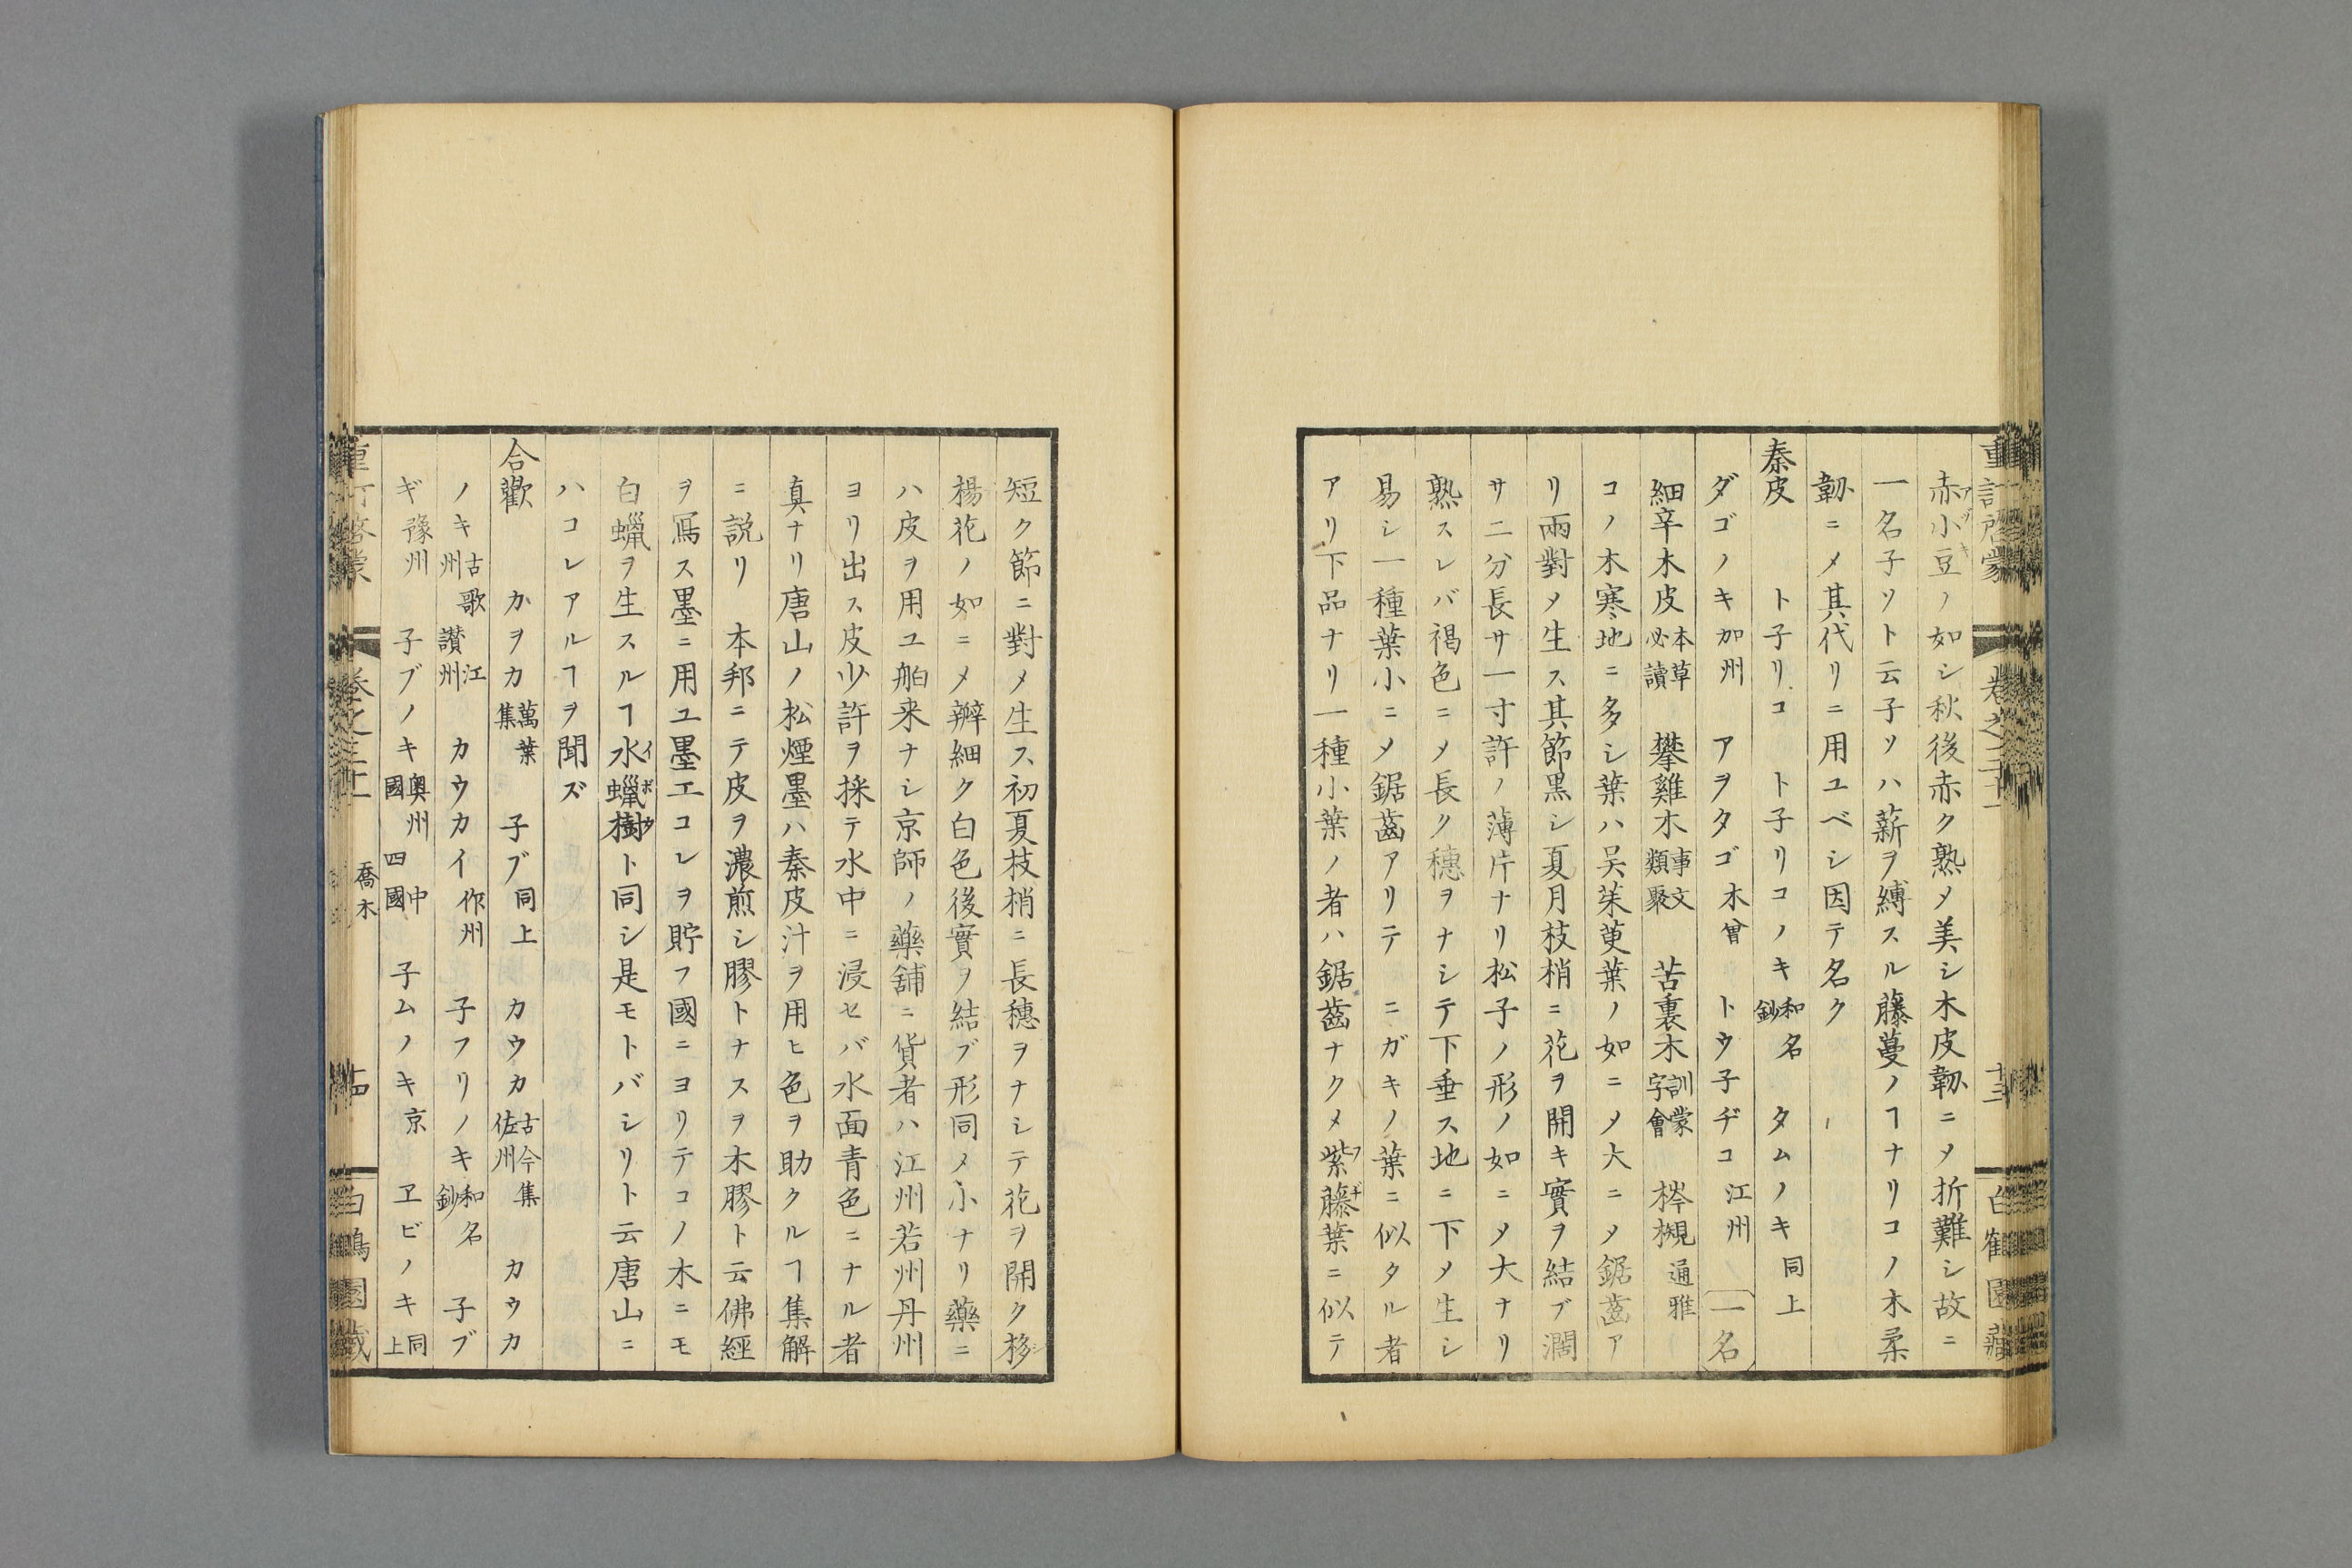 赤小豆ノ如シ秋後赤ク熟メ美シ木皮韌ニメ折難シ故ニ
一名子ソト云子ソハ薪ヲ縛スル藤蔓ノヿナリコノ木柔
韌ニメ其代リニ用ユベシ因テ名ク
秦皮 ト子リコ ト子リコノキ和名鈔 タムノキ同上
ダゴノキ加州 アヲタゴ木曾 トウ子ヂコ江州 一名
細辛木皮本草必讀 攀雞木事文類聚 苦裏木訓蒙字會 梣槻通雅
コノ木寒地ニ多シ葉ハ呉茱萸葉ノ如ニメ大ニメ鋸齒ア
リ兩對メ生ス其節黒シ夏月枝梢ニ花ヲ開キ實ヲ結ブ濶
サ二分長サ一寸許ノ薄片ナリ松子ノ形ノ如ニメ大ナリ
熟スレバ褐色ニメ長ク穗ヲナシテ下垂ス地ニ下メ生シ
易シ一種葉小ニメ鋸齒アリテ ニガキノ葉ニ似タル者
アリ下品ナリ一種小葉ノ者ハ鋸齒ナクメ紫藤葉ニ似テ
短ク節ニ對メ生ス初夏枝梢ニ長穗ヲナシテ花ヲ開ク栘
楊花ノ如ニメ瓣細ク白色後實ヲ結ブ形同メ小ナリ藥ニ
ハ皮ヲ用ユ舶来ナシ京師ノ藥舖ニ貨者ハ江州若州丹州
ヨリ出ス皮少許ヲ採テ水中ニ浸セバ水面青色ニナル者
真ナリ唐山ノ松煙墨ハ秦皮汁ヲ用ヒ色ヲ助クルヿ集解
ニ説リ 本邦ニテ皮ヲ濃煎シ膠トナスヲ木膠ト云佛經
ヲ寫ス墨ニ用ユ墨工コレヲ貯フ國ニヨリテコノ木ニモ
白蠟ヲ生スルヿ水蠟樹ト同シ是モトバシリト云唐山ニ
ハコレアルヿヲ聞ズ
合歡 カヲカ萬葉集 子ブ同上 カウカ古今集佐州 カウカ
ノキ古歌州 讃州江州 カウカイ作州 子フリノキ和名鈔 子ブ
ギ豫州 子ブノキ奥州中國四國 子ムノキ京 ヱビノキ同上
喬木